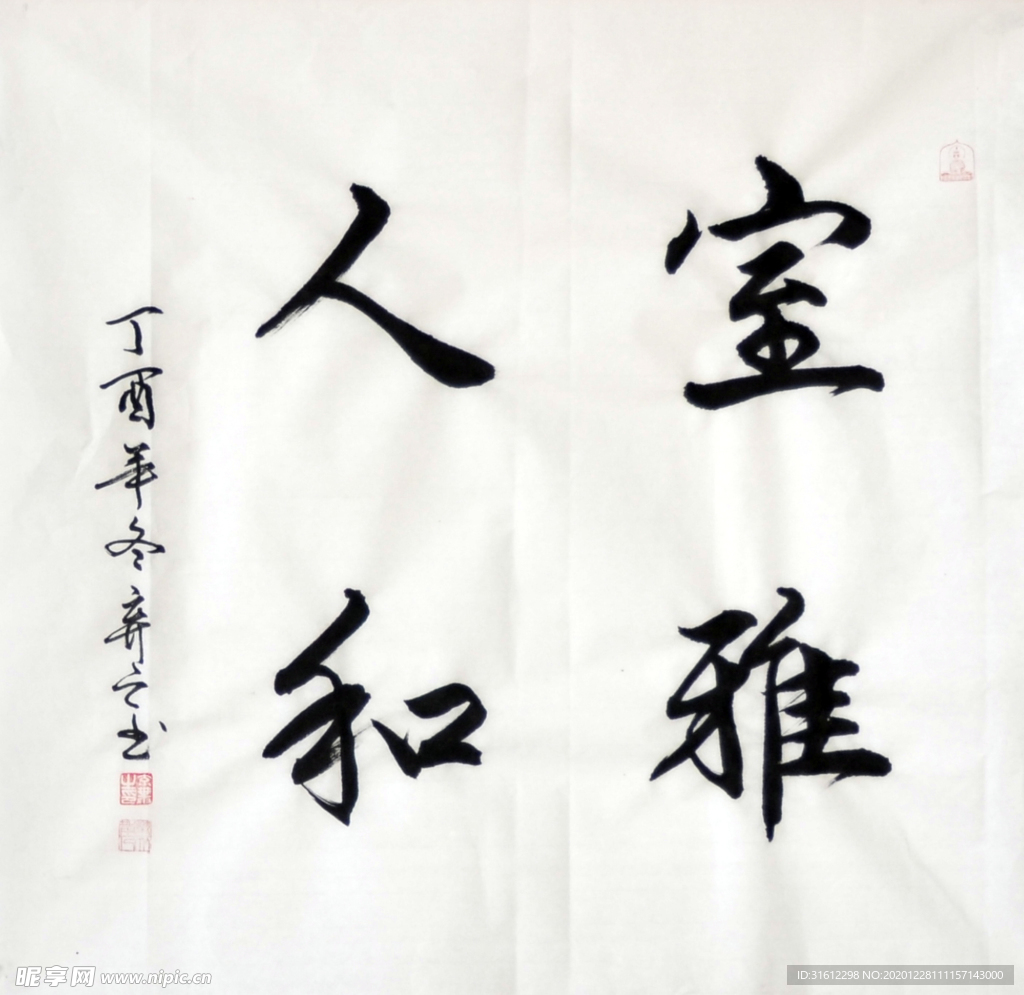 室雅
人和
丁酉年冬弃之书
昵享网 www.nipic.cn
ID:31612298 NO:20201228111157143000